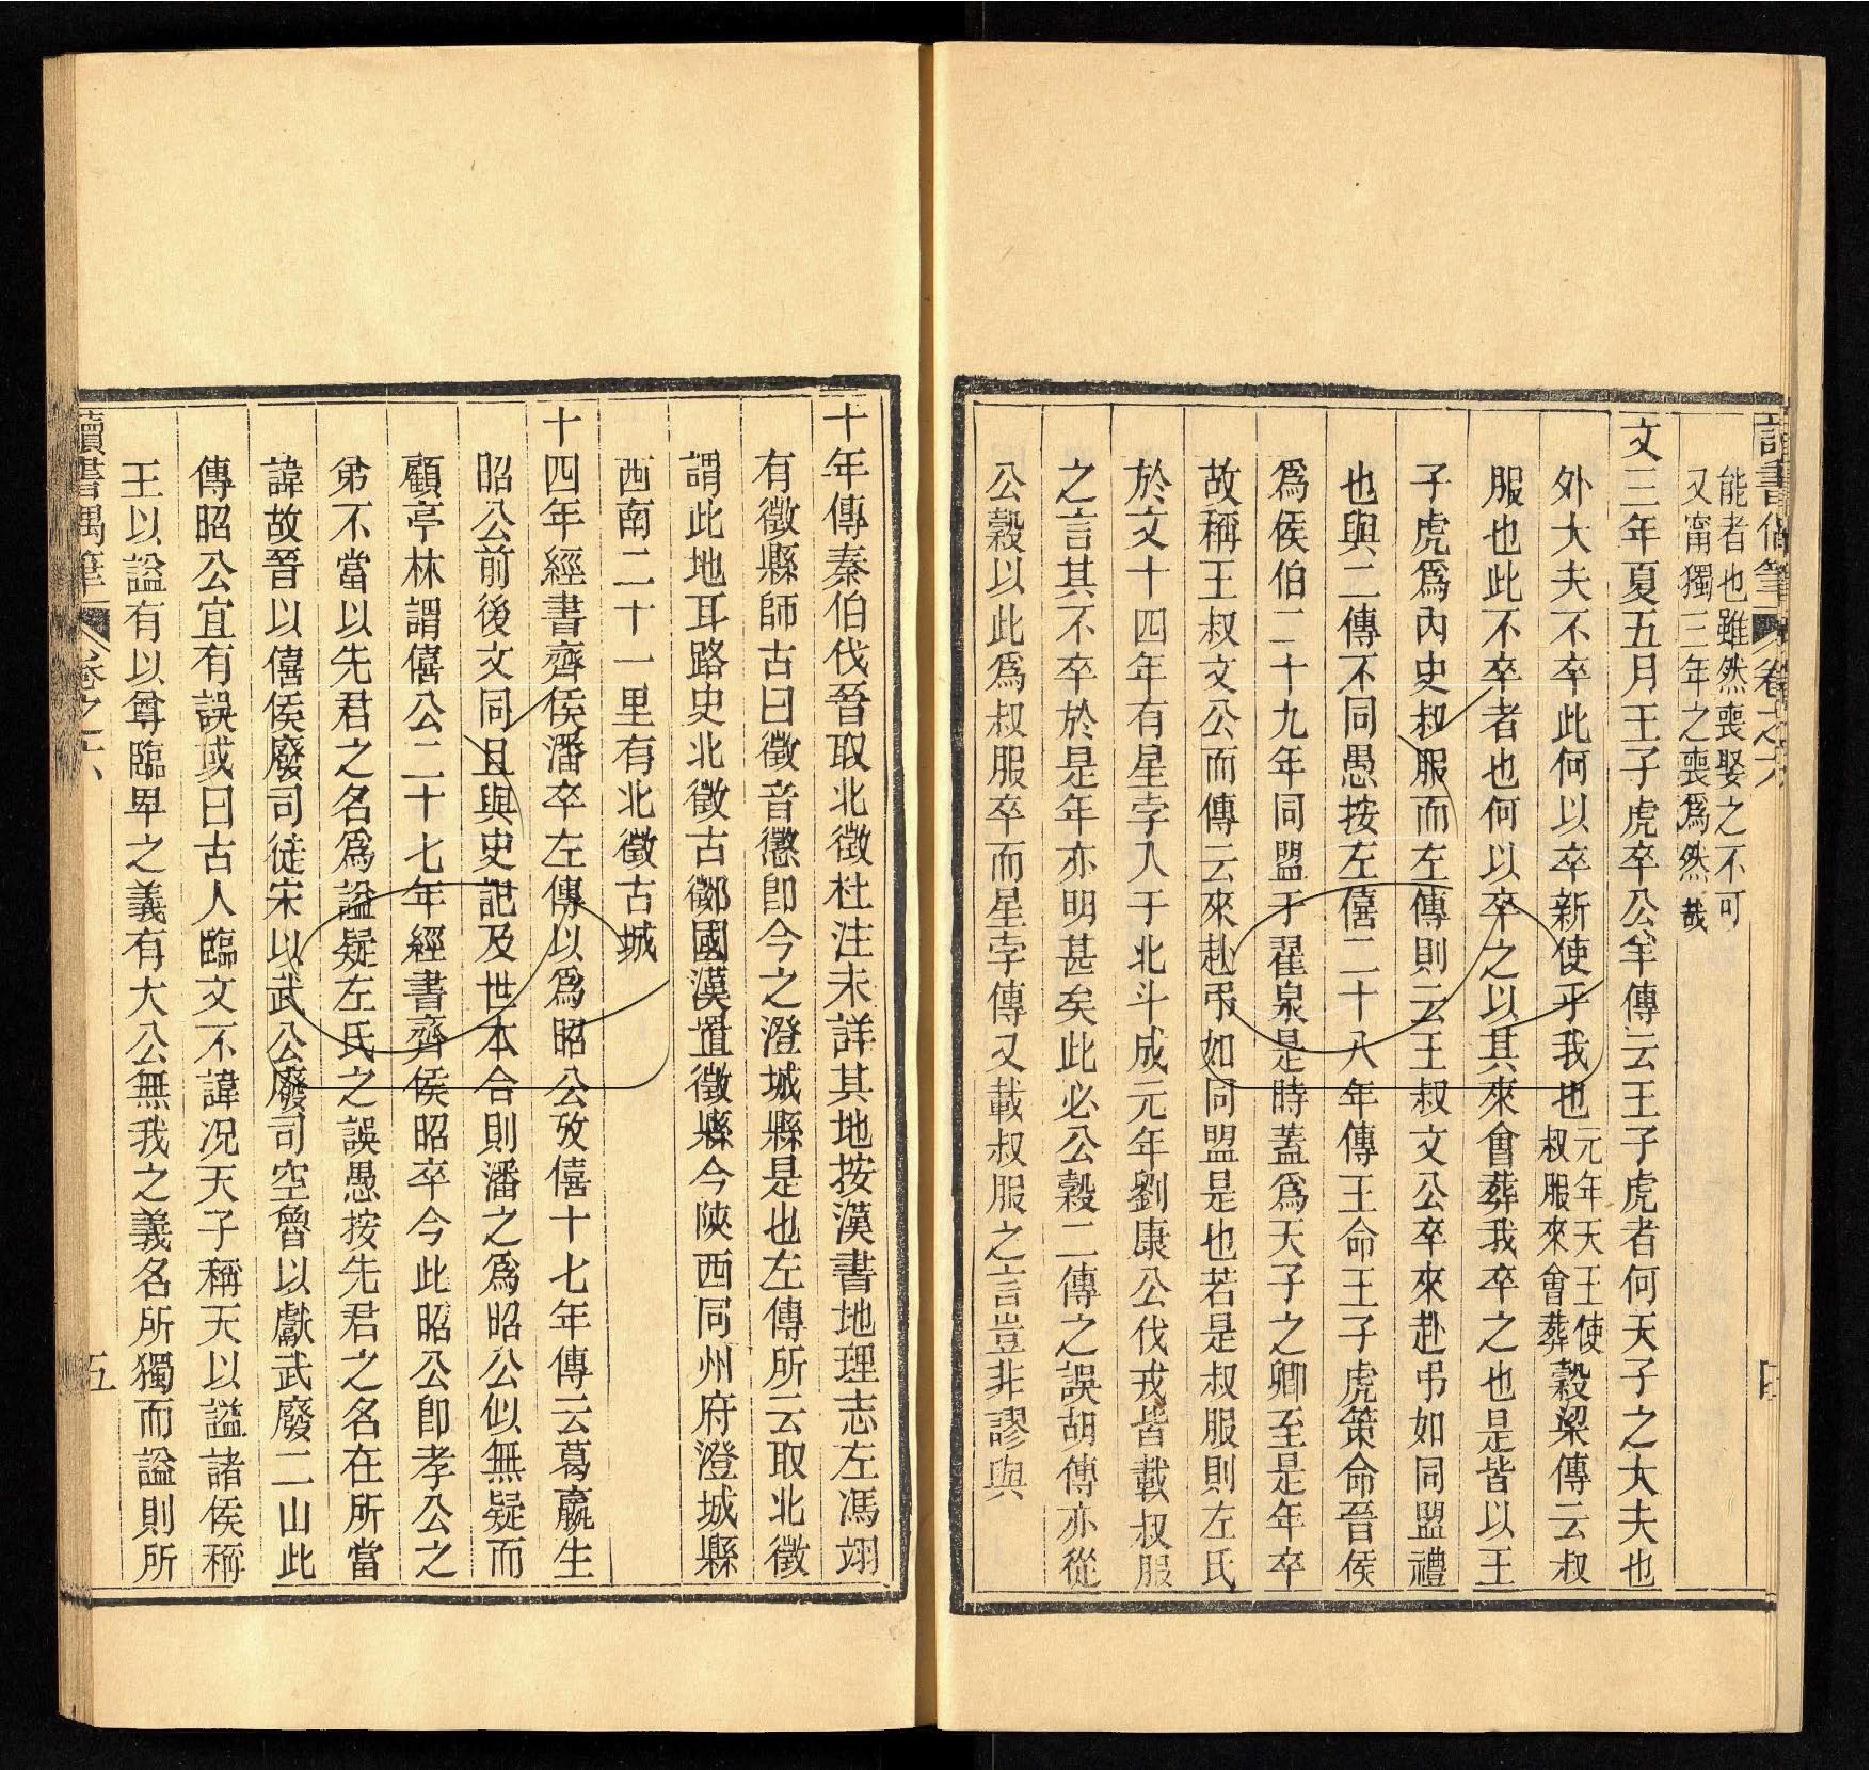 讀書偶筆　卷之六
能者也雖然喪娶之不可
又甯獨三年之喪爲然哉
文三年夏五月王子虎卒公羊傳云王子虎者何天子之大夫也
外大夫不卒此何以卒新使乎我也元年天王使叔服來會葬穀梁傳云叔
服也此不卒者也何以卒之以其來會葬我卒之也是皆以王
子虎爲內史叔服而左傳則云王叔文公卒來赴弔如同盟禮
也與二傳不同愚按左僖二十八年傳王命王子虎策命晉侯
爲侯伯二十九年同盟于翟泉是時蓋爲天子之卿至是年卒
故稱王叔文公而傳云來赴弔如同盟是也若是叔服則左氏
於文十四年有星孛入于北斗成元年劉康公伐戎皆載叔服
之言其不卒於是年亦明甚矣此必公穀二傳之誤胡傳亦從
公穀以此爲叔服卒而星孛傳又載叔服之言豈非謬與
十年傳秦伯伐晉取北徵杜注未詳其地按漢書地理志左馮翊
有徵縣師古曰徵音懲卽今之澄城縣是也左傳所云取北徵
謂此地耳路史北徵古鄒國漢置徵縣今陝西同州府澄城縣
西南二十一里有北徵古城
十四年經書齊侯潘卒左傳以爲昭公攷僖十七年傳云葛嬴生
昭公前後文同且與史記及世本合則潘之爲昭公似無疑而
顧亭林謂僖公二十七年經書齊侯昭卒今此昭公卽孝公之
弟不當以先君之名爲謚疑左氏之誤愚按先君之名在所當
諱故晉以僖侯廢司徒宋以武公廢司空魯以獻武廢二山此
傳昭公宜有誤或曰古人臨文不諱況天子稱天以謚諸侯稱
王以謚有以尊臨卑之義有大公無我之義名所獨而謚則所
讀書偶筆　卷之六　五